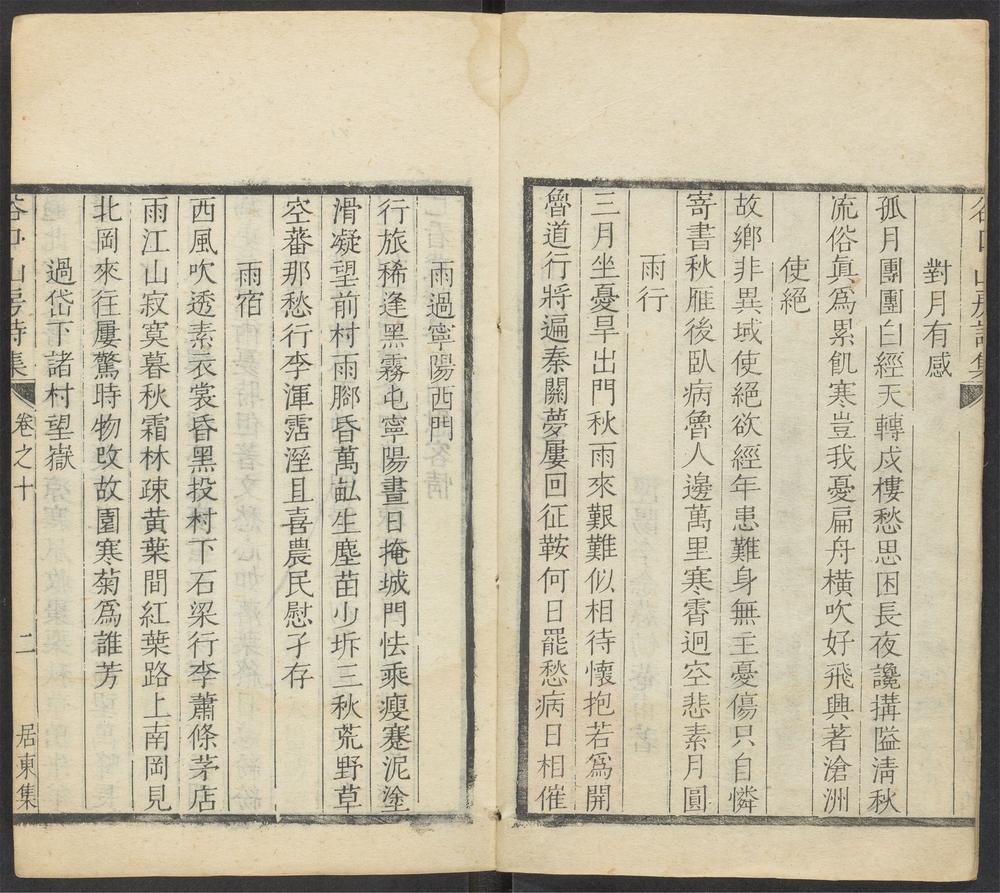 對月有感
孤月團團白經天轉戍樓愁思困長夜讒搆隘淸秋
流俗眞爲累飢寒豈我憂扁舟橫吹好飛興著滄洲
使絕
故鄉非異域使絕欲經年患難身無主憂傷只自憐
寄書秋雁後臥病魯人邊萬里寒霄迥空悲素月圓
雨行
三月坐憂旱出門秋雨來艱難似相待懷抱若爲開
魯道行將遍秦關夢屢回征鞍何日罷愁病日相催
雨過寧陽西門
行旅稀逢黑霧屯寧陽晝日掩城門怯乘瘦蹇泥塗
滑凝望前村雨腳昏萬畝生塵苗少坼三秋荒野草
空蕃那愁行李渾霑溼且喜農民慰孑存
雨宿
西風吹透素衣裳昏黑投村下石梁行李蕭條茅店
雨江山寂寞暮秋霜林疎黃葉間紅葉路上南岡見
北岡來往屢驚時物改故園寒菊爲誰芳
過岱下諸村望嶽
山房詩集
卷之十
二
居東集